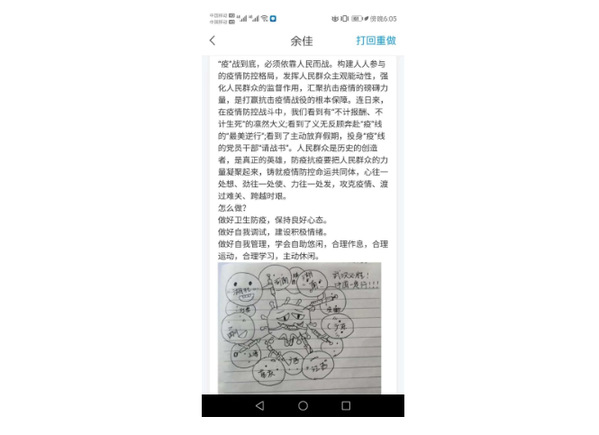 中国移动
中国移动
傍晚6:05
余佳
打回重做
“疫”战到底，必须依靠人民而战。构建人人参与
的疫情防控格局，发挥人民群众主观能动性，强
化人民群众的监督作用，汇聚抗击疫情的磅礴力
量，是打赢抗击疫情战役的根本保障。连日来，
在疫情防控战斗中，我们看到有“不计报酬、不
计生死”的凛然大义;看到了义无反顾奔赴“疫”线
的“最美逆行”;看到了主动放弃假期，投身“疫”线
的党员干部“请战书”。人民群众是历史的创造
者，是真正的英雄，防疫抗疫要把人民群众的力
量凝聚起来，铸就疫情防控命运共同体，心往一
处想、劲往一处使、力往一处发，攻克疫情、渡
过难关、跨越时艰。
怎么做?
做好卫生防疫，保持良好心态。
做好自我调试，建设积极情绪。
做好自我管理，学会自助悠闲，合理作息，合理
运动，合理学习，主动休闲。
武汉必胜！